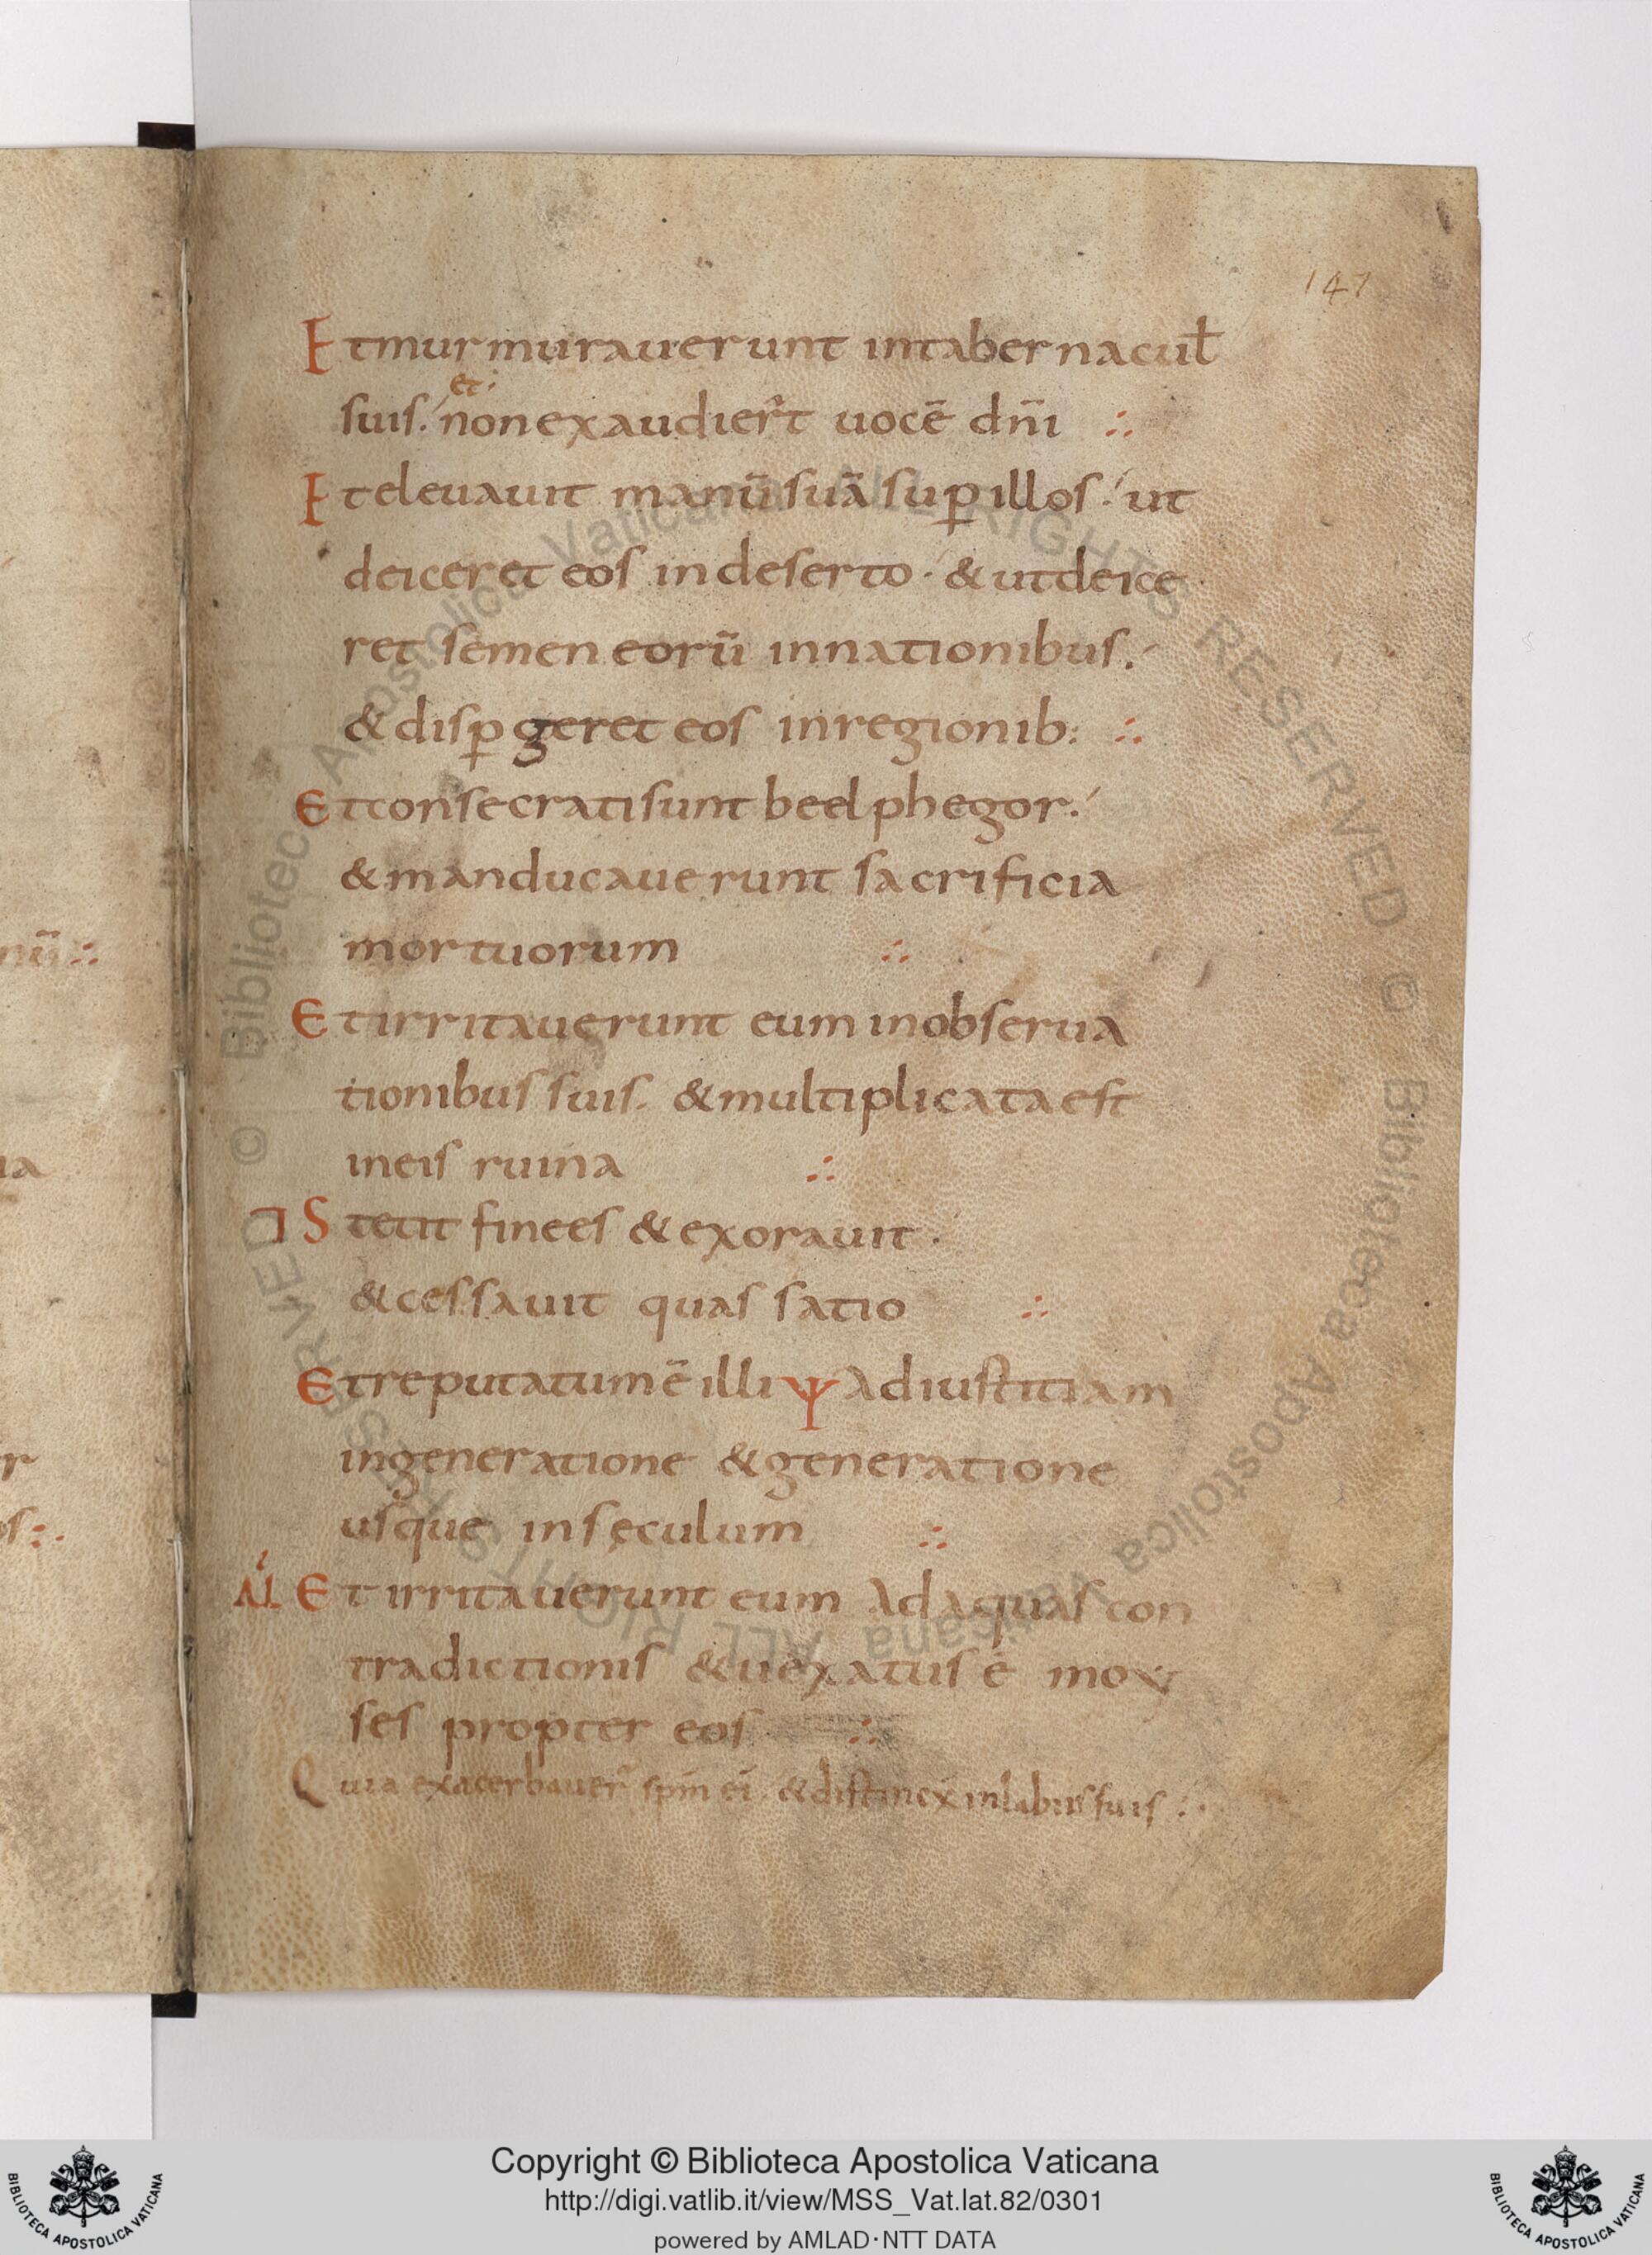 147
Et murmurauerunt in tabernacul̄
et
suis. non exaudier̄t uocē dn̄i ∴
Et eleuauit manū suā sup̱ illos. ut
deiceret eos in deserto. & ut deice
ret semen eorū in nationibus.
& disp̱geret eos in regionib: ∴
Et consecrati sunt beelphegor.
& manducauerunt sacrificia
mortuorum ∴
Et irritauerunt eum in obserua
tionibus suis. & multiplicata est
in eis ruina ∴
Stetit finees & exorauit.
& cessauit quassatio ∴
Et reputatum ē illi ψ ad iustitiam
in generatione & generatione
usque in sęculum ∴
Et irritauerunt eum ad aquas con
tradictionis & uexatus ē moy
ses propter eos ∴
Quia exacerbauer̄ sp̄m ei. & distinex in labiis suis ∴
© Biblioteca Apostolica Vaticana ALL RIGHTS RESERVED © Biblioteca Apostolica Vaticana ALL RIGHTS RESERVED
Copyright © Biblioteca Apostolica Vaticana
http://digi.vatlib.it/view/MSS_Vat.lat.82/0301
powered by AMLAD·NTT DATA
BIBLIOTECA APOSTOLICA VATICANA
BIBLIOTECA APOSTOLICA VATICANA